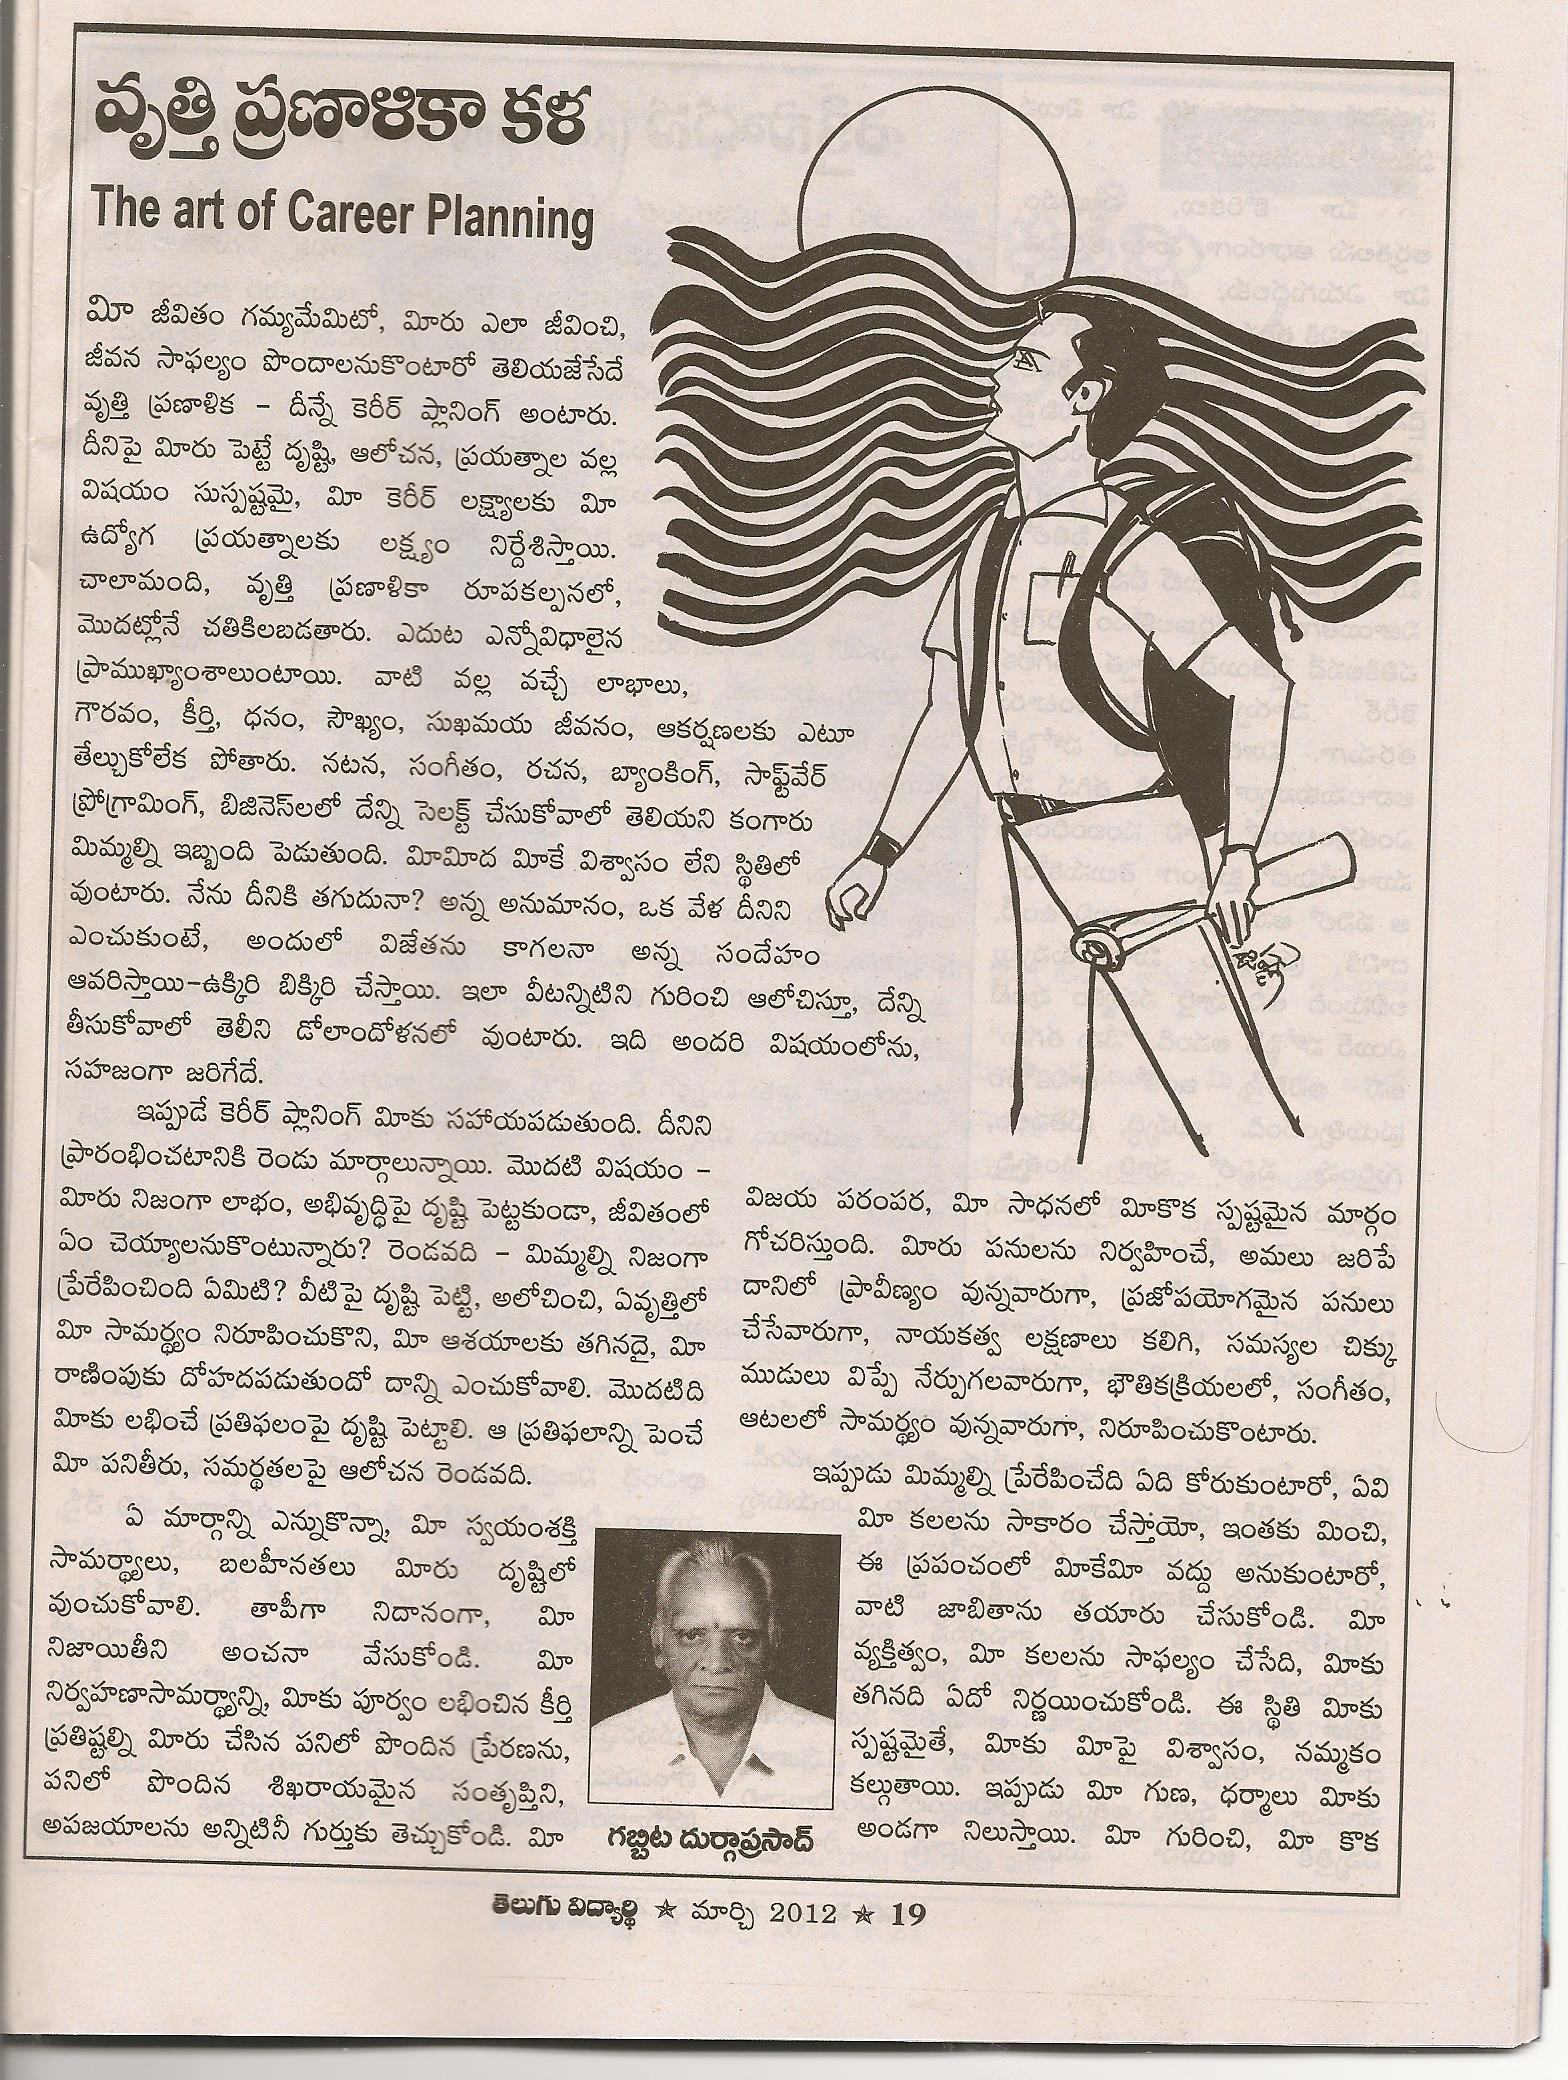 వృత్తి ప్రణాళికా కళ
The art of Career Planning
మీ జీవితం గమ్యమేమిటో, మీరు ఎలా జీవించి,
జీవన సాఫల్యం పొందాలనుకొంటారో తెలియజేసేదే
వృత్తి ప్రణాళిక – దీన్నే కెరీర్ ప్లానింగ్ అంటారు.
దీనిపై మీరు పెట్టే దృష్టి, ఆలోచన, ప్రయత్నాల వల్ల
విషయం సుస్పష్టమై, మీ కెరీర్ లక్ష్యాలకు మీ
ఉద్యోగ ప్రయత్నాలకు లక్ష్యం నిర్దేశిస్తాయి.
చాలామంది, వృత్తి ప్రణాళికా రూపకల్పనలో,
మొదట్లోనే చతికిలబడతారు. ఎదుట ఎన్నోవిధాలైన
ప్రాముఖ్యాంశాలుంటాయి. వాటి వల్ల వచ్చే లాభాలు,
గౌరవం, కీర్తి, ధనం, సౌఖ్యం, సుఖమయ జీవనం, ఆకర్షణలకు ఎటూ
తేల్చుకోలేక పోతారు. నటన, సంగీతం, రచన, బ్యాంకింగ్, సాఫ్ట్‌వేర్
ప్రోగ్రామింగ్, బిజినెస్‌లలో దేన్ని సెలక్ట్ చేసుకోవాలో తెలియని కంగారు
మిమ్మల్ని ఇబ్బంది పెడుతుంది. మీమీద మీకే విశ్వాసం లేని స్థితిలో
వుంటారు. నేను దీనికి తగుదునా? అన్న అనుమానం, ఒక వేళ దీనిని
ఎంచుకుంటే, అందులో విజేతను కాగలనా అన్న సందేహం
ఆవరిస్తాయి-ఉక్కిరి బిక్కిరి చేస్తాయి. ఇలా వీటన్నిటిని గురించి ఆలోచిస్తూ, దేన్ని
తీసుకోవాలో తెలీని డోలాందోళనలో వుంటారు. ఇది అందరి విషయంలోను,
సహజంగా జరిగేదే.
ఇప్పుడే కెరీర్ ప్లానింగ్ మీకు సహాయపడుతుంది. దీనిని
ప్రారంభించటానికి రెండు మార్గాలున్నాయి. మొదటి విషయం –
మీరు నిజంగా లాభం, అభివృద్ధిపై దృష్టి పెట్టకుండా, జీవితంలో
ఏం చెయ్యాలనుకొంటున్నారు? రెండవది – మిమ్మల్ని నిజంగా
ప్రేరేపించింది ఏమిటి? వీటిపై దృష్టి పెట్టి, అలోచించి, ఏవృత్తిలో
మీ సామర్థ్యం నిరూపించుకొని, మీ ఆశయాలకు తగినదై, మీ
రాణింపుకు దోహదపడుతుందో దాన్ని ఎంచుకోవాలి. మొదటిది
మీకు లభించే ప్రతిఫలంపై దృష్టి పెట్టాలి. ఆ ప్రతిఫలాన్ని పెంచే
మీ పనితీరు, సమర్థతలపై ఆలోచన రెండవది.
ఏ మార్గాన్ని ఎన్నుకొన్నా, మీ స్వయంశక్తి
సామర్థ్యాలు, బలహీనతలు మీరు దృష్టిలో
వుంచుకోవాలి. తాపీగా నిదానంగా, మీ
నిజాయితీని అంచనా వేసుకోండి. మీ
నిర్వహణాసామర్థ్యాన్ని, మీకు పూర్వం లభించిన కీర్తి
ప్రతిష్టల్ని మీరు చేసిన పనిలో పొందిన ప్రేరణను,
పనిలో పొందిన శిఖరాయమైన సంతృప్తిని,
అపజయాలను అన్నిటినీ గుర్తుకు తెచ్చుకోండి. మీ
విజయ పరంపర, మీ సాధనలో మీకొక స్పష్టమైన మార్గం
గోచరిస్తుంది. మీరు పనులను నిర్వహించే, అమలు జరిపే
దానిలో ప్రావీణ్యం వున్నవారుగా, ప్రజోపయోగమైన పనులు
చేసేవారుగా, నాయకత్వ లక్షణాలు కలిగి, సమస్యల చిక్కు
ముడులు విప్పే నేర్పుగలవారుగా, భౌతికక్రియలలో, సంగీతం,
ఆటలలో సామర్థ్యం వున్నవారుగా, నిరూపించుకొంటారు.
ఇప్పుడు మిమ్మల్ని ప్రేరేపించేది ఏది కోరుకుంటారో, ఏవి
మీ కలలను సాకారం చేస్తాయో, ఇంతకు మించి,
ఈ ప్రపంచంలో మీకేమీ వద్దు అనుకుంటారో,
వాటి జాబితాను తయారు చేసుకోండి. మీ
వ్యక్తిత్వం, మీ కలలను సాఫల్యం చేసేది, మీకు
తగినది ఏదో నిర్ణయించుకోండి. ఈ స్థితి మీకు
స్పష్టమైతే, మీకు మీపై విశ్వాసం, నమ్మకం
కల్గుతాయి. ఇప్పుడు మీ గుణ, ధర్మాలు మీకు
అండగా నిలుస్తాయి. మీ గురించి, మీ కొక
గబ్బిట దుర్గాప్రసాద్
తెలుగు విద్యార్థి ★ మార్చి 2012 ★ 19